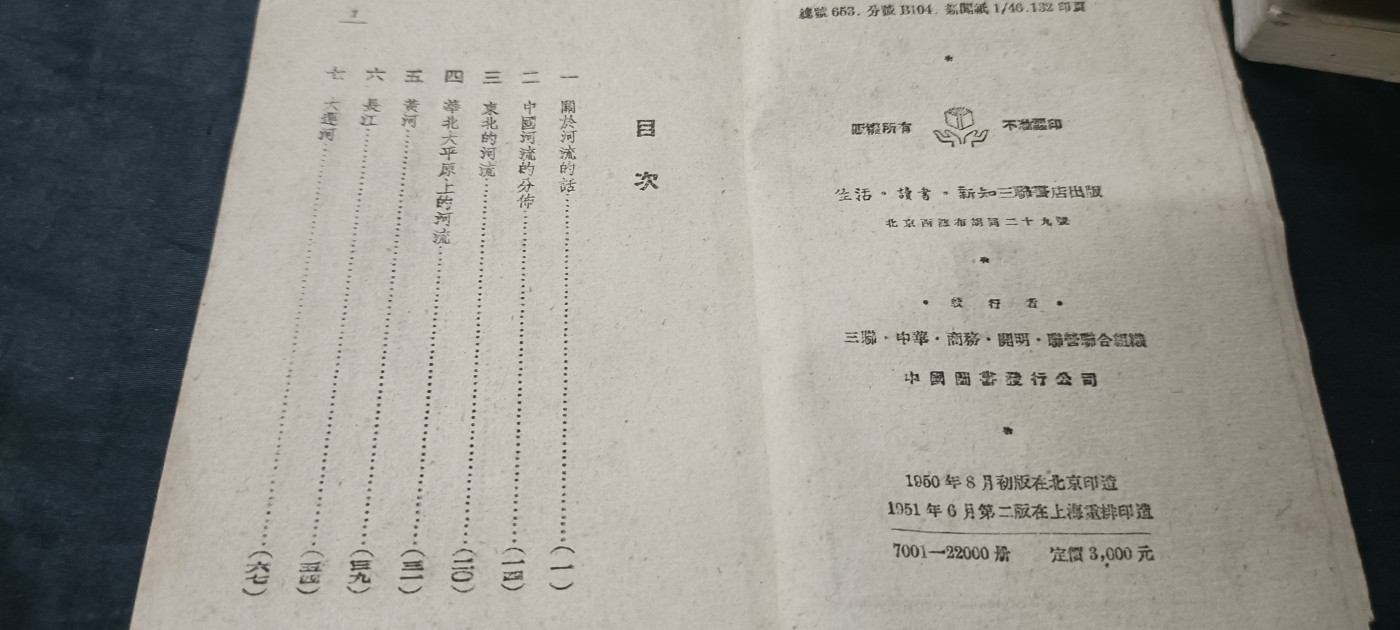 總號 653. 分號 B104. 新聞紙 1/46.132 印頁
版權所有 不准翻印
生活·讀書·新知三聯書店出版
北京西總布胡同二十九號
·發行者·
三聯·中華·商務·開明·聯營聯合組織
中國圖書發行公司
1950 年 8 月初版在北京印造
1951 年 6 月第二版在上海重排印造
7001—22000 册 定價 3,000 元
目次
一 關於河流的話……(一)
二 中國河流的分佈……(一四)
三 東北的河流……(二〇)
四 華北大平原上的河流……(三一)
五 黃河……(三九)
六 長江……(五四)
七 大運河……(六七)
1